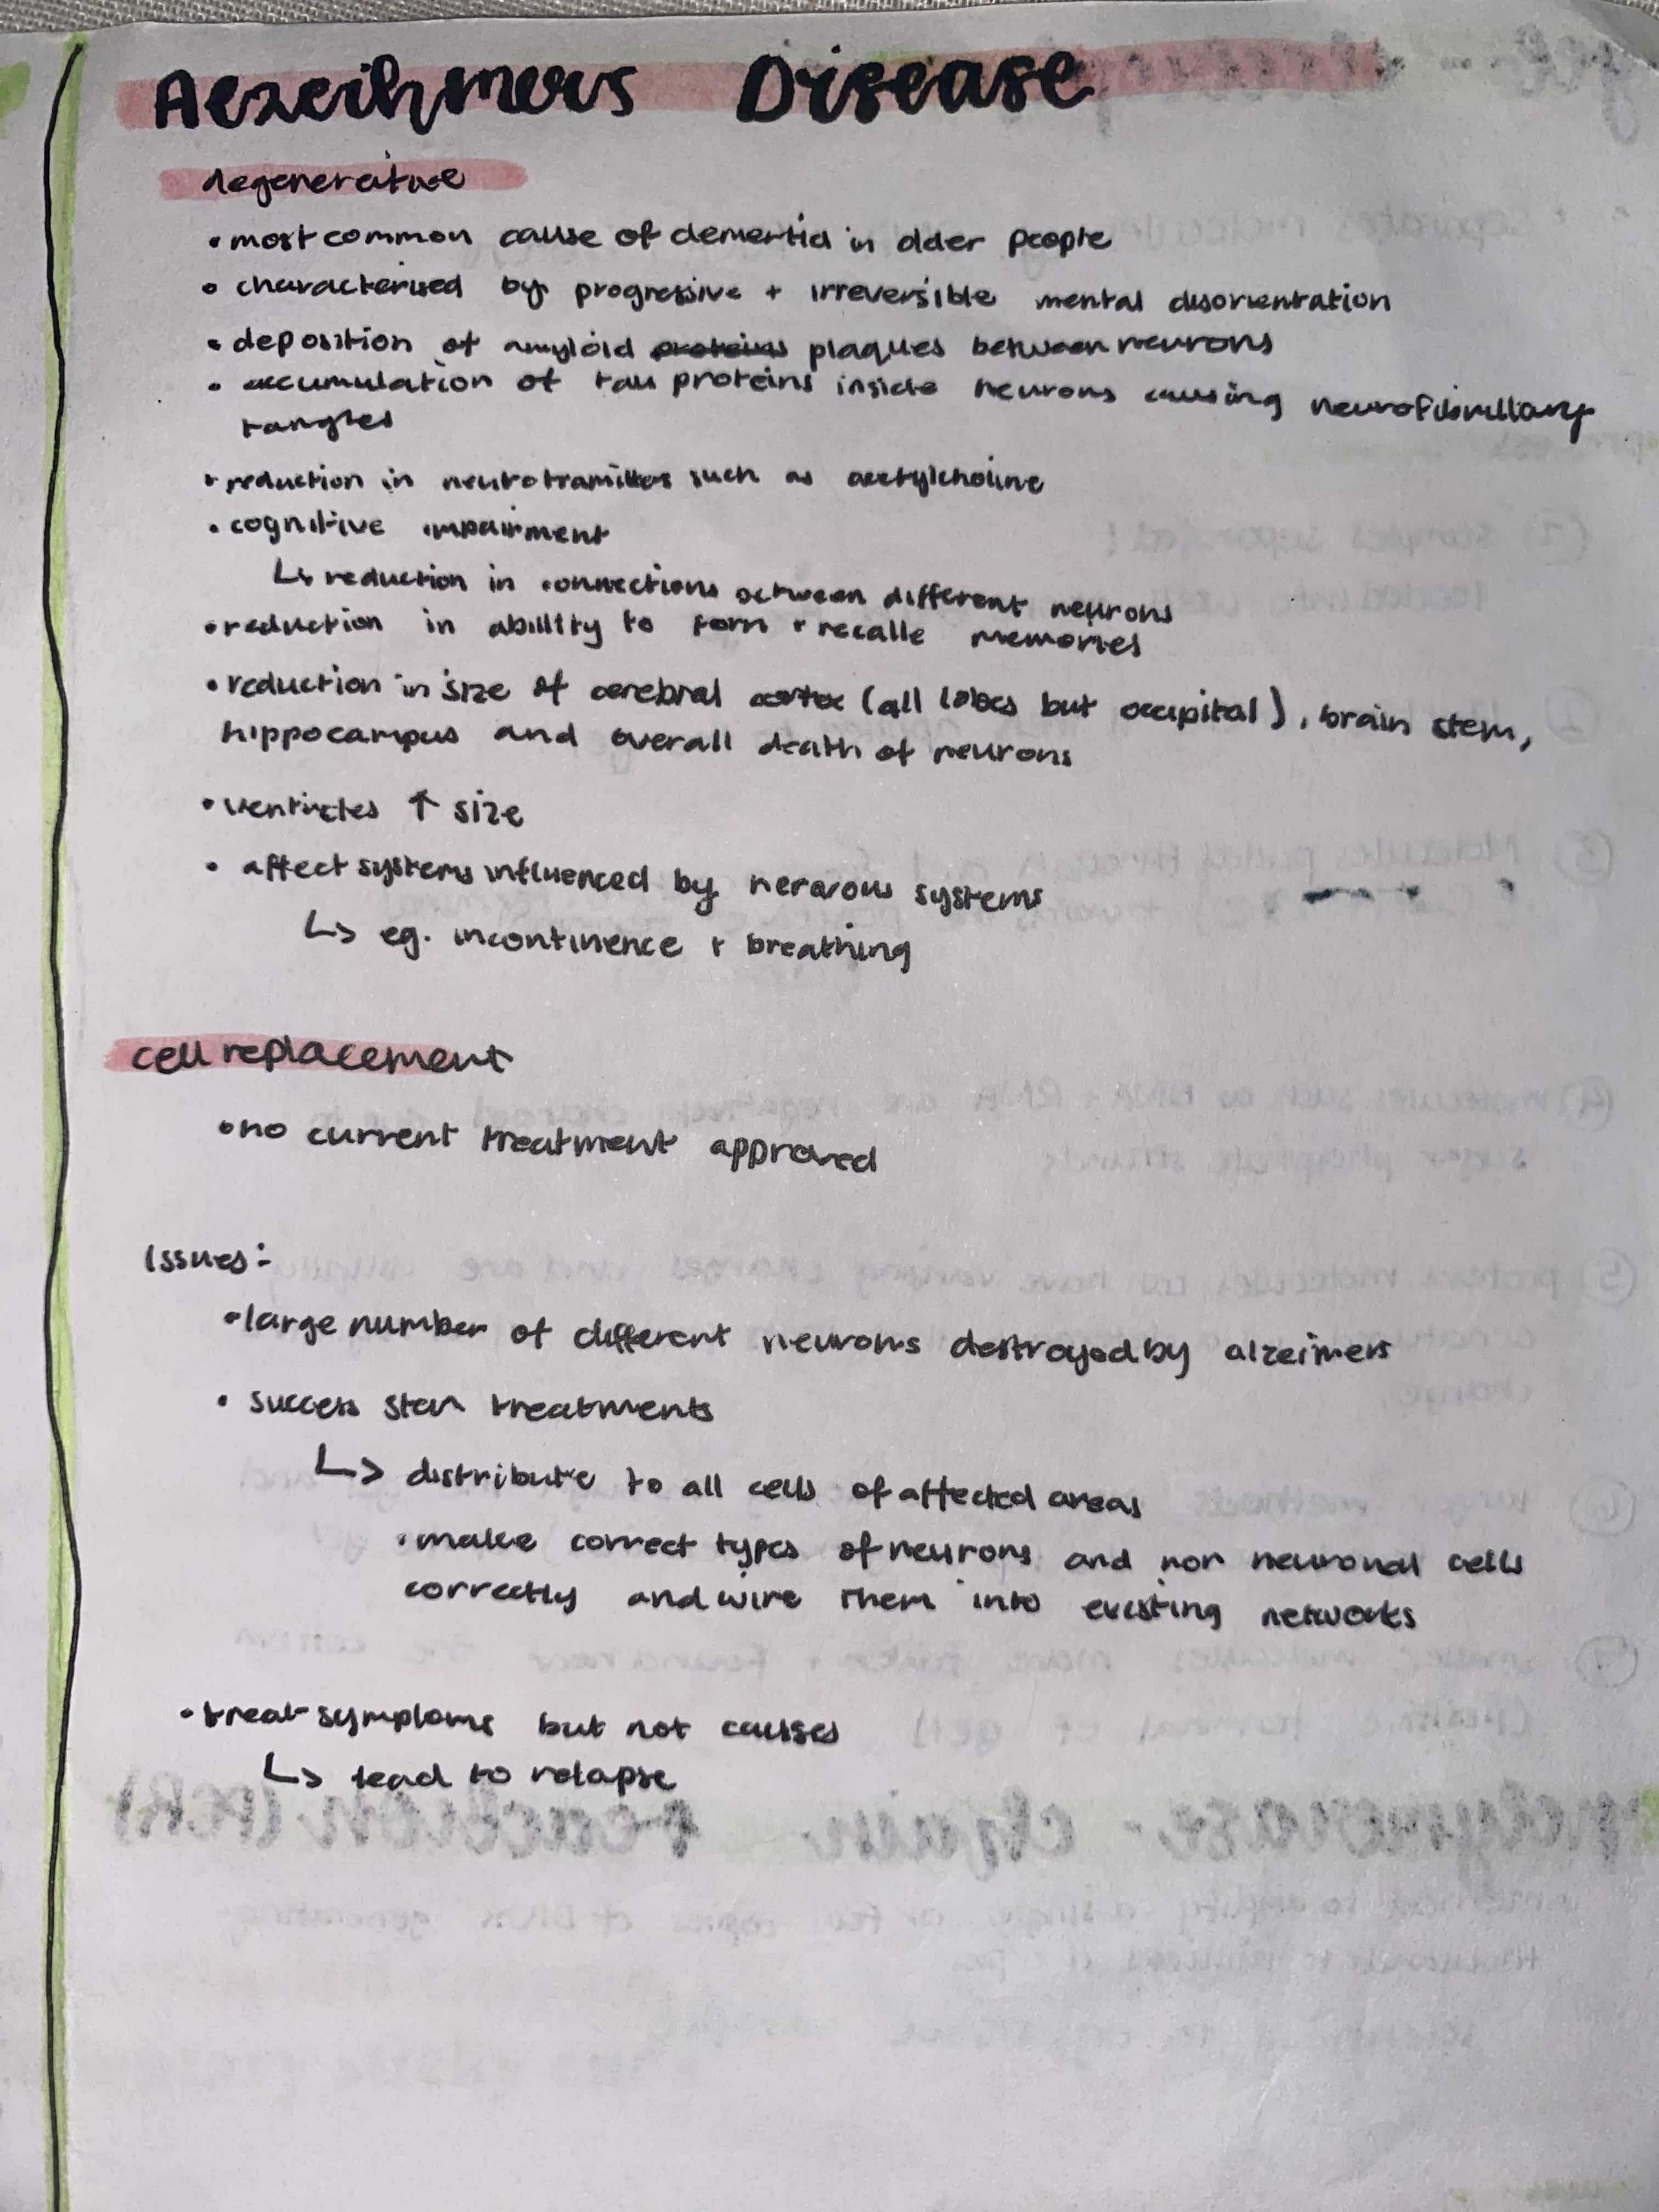 Alzeihmers Disease
degenerative
• most common cause of dementia in older people
• characterised by progressive + irreversible mental disorientation
• deposition of amyloid proteins plaques between neurons
• accumulation of tau proteins inside neurons causing neurofibrillary
tangles
• reduction in neurotramitters such as acetylcholine
• cognitive impairment
↳ reduction in connections between different neurons
• reduction in abillity to form + recalle memories
• reduction in size of cerebral cortex (all lobes but occipital), brain stem,
hippocampus and overall death of neurons
• ventricles ↑ size
• affect systems influenced by nervous systems
↳ eg. incontinence + breathing
cell replacement
• no current treatment approved
Issues:
• large number of different neurons destroyed by alzeimers
• success stem treatments
↳ distribute to all cells of affected areas
• make correct types of neurons and non neuronal cells
correctly and wire them into existing networks
• treat symptoms but not causes
↳ lead to relapse
polymerase chain reaction (PCR)